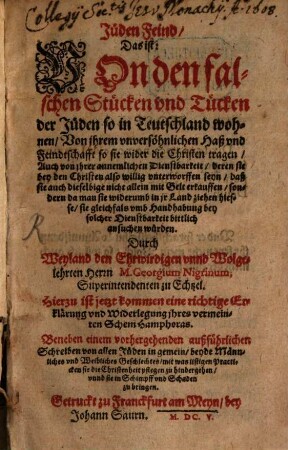 Collegij Soc.tis Jesu Monachij. A. 1608.
Jüden Feind/
Das ist:
VOn den fal-
schen Stücken vnd Tücken
der Jüden so in Teutschland woh-
nen/ Von ihrem unversöhnlichen Haß vnd
Feindtschafft so sie wider die Christen tragen/
Auch von jhrer Dienstbarkeit/ deren sie
bey den Christen also willig vnterworffen seyn/ daß
sie auch dieselbige nicht allein mit Gelt erkauffen/ son-
dern da man sie widerumb in jr Land ziehen hies-
se/ sie gleichfals vmb Handhabung bey
solcher Dienstbarkeit bittlich
ansuchen würden.
Durch
Weyland den Ehrwirdigen vnnd Wolge-
lehrten Herrn M. Georgium Nigrinum,
Superintendenten zu Echzel.
Hierzu ist jetzt kommen eine richtige Er-
klärung vnd Widerlegung jhres vermein-
ten Schem Hamphoras.
Beneben einem vorhergehenden außführlichen
Schreiben von allen Jüden in gemein/ beyde Männ-
liches vnd Weibliches Geschlechts/ mit was listigen Practi-
cken sie die Christenheit pflegen zu hindergehen/
vnnd sie in Schimpff vnd Schaden
zu bringen.
Getruckt zu Franckfurt am Meyn/ bey
Johann Saurn. M. DC. V.